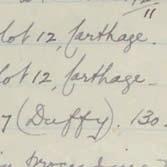 11
lot 12, Carthage.
lot 12, Carthage.
7 (Duffy). 130.